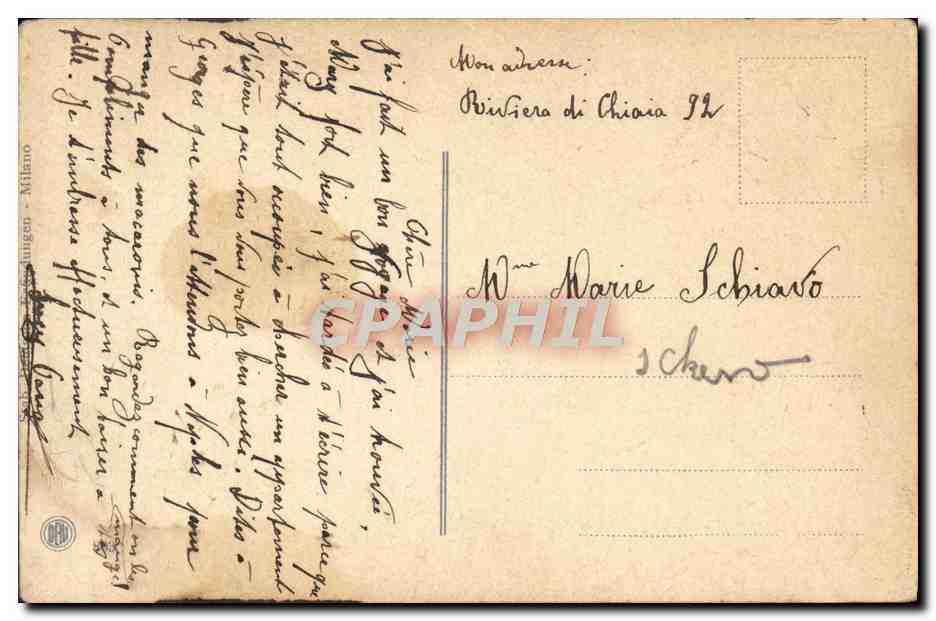 Chère Marie
J'ai fait un bon voyage et j'ai trouvée,
Mary fort bien. J'ai tardés à t'écrire parce que
j'étais tout occupée à chercher un appartement
J'éspère que vous vous portez bien aussi. Dites à
Georges que nous l'attendons à Naples pour
manger des macaronis. Regardez comment on les mange!
Compliments à tous, et un bon baiser à
fille. Je t'embrasse affectueusement
Mon adresse:
Riviera di Chiaia 92
Mme Marie Schiavo
Milano
DEAR
CPAPHIL